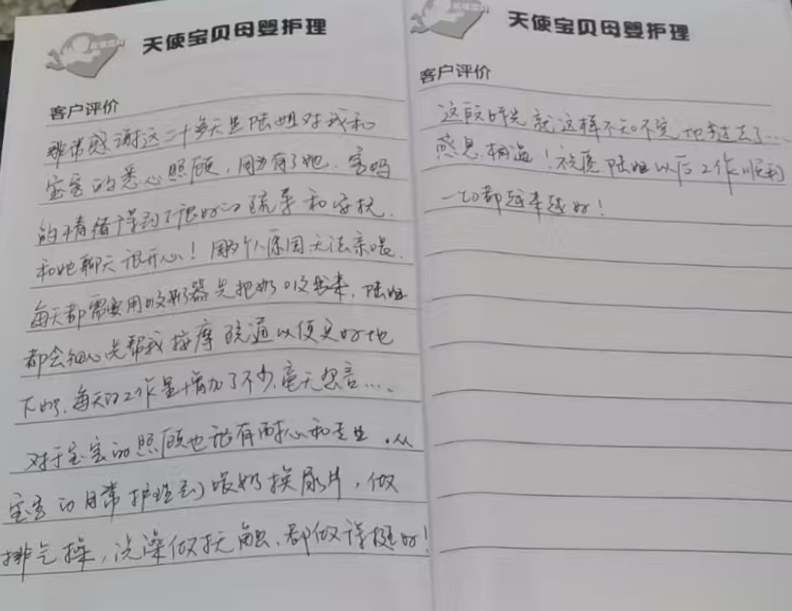 天使宝贝母婴护理
客户评价
非常感谢这二十多天里陆姐对我和
宝宝的悉心照顾,因为有了她,宝妈
的情绪得到了很好的疏导和安抚.
和她聊天很开心!因个人原因无法亲喂.
每天都需要用吸奶器先把奶吸出来,陆姐
都会细心先帮我按摩疏通以便更好地
下奶,每天的工作量增加了不少,毫无怨言....
对于宝宝的照顾也很有耐心和专业,从
宝宝的日常护理到喂奶换尿片,做
排气操,洗澡做抚触,都做得挺好!
天使宝贝母婴护理
客户评价
这段时光就这样不知不觉地过去了...
感恩相遇!祝愿陆姐以后工作顺利
一切都越来越好!